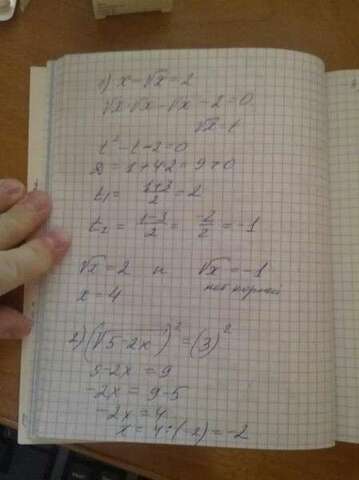 1) x-√x=2
√x·√x-√x-2=0
√x=t
t²-t-2=0
D=1+4·2=9>0
t₁=(1+3)/2=2
t₂=(1-3)/2=-2/2=-1
√x=2 и √x=-1
x=4 нет корней
2) (√5-2x)²=(3)²
5-2x=9
-2x=9-5
-2x=4
x=4:(-2)=-2